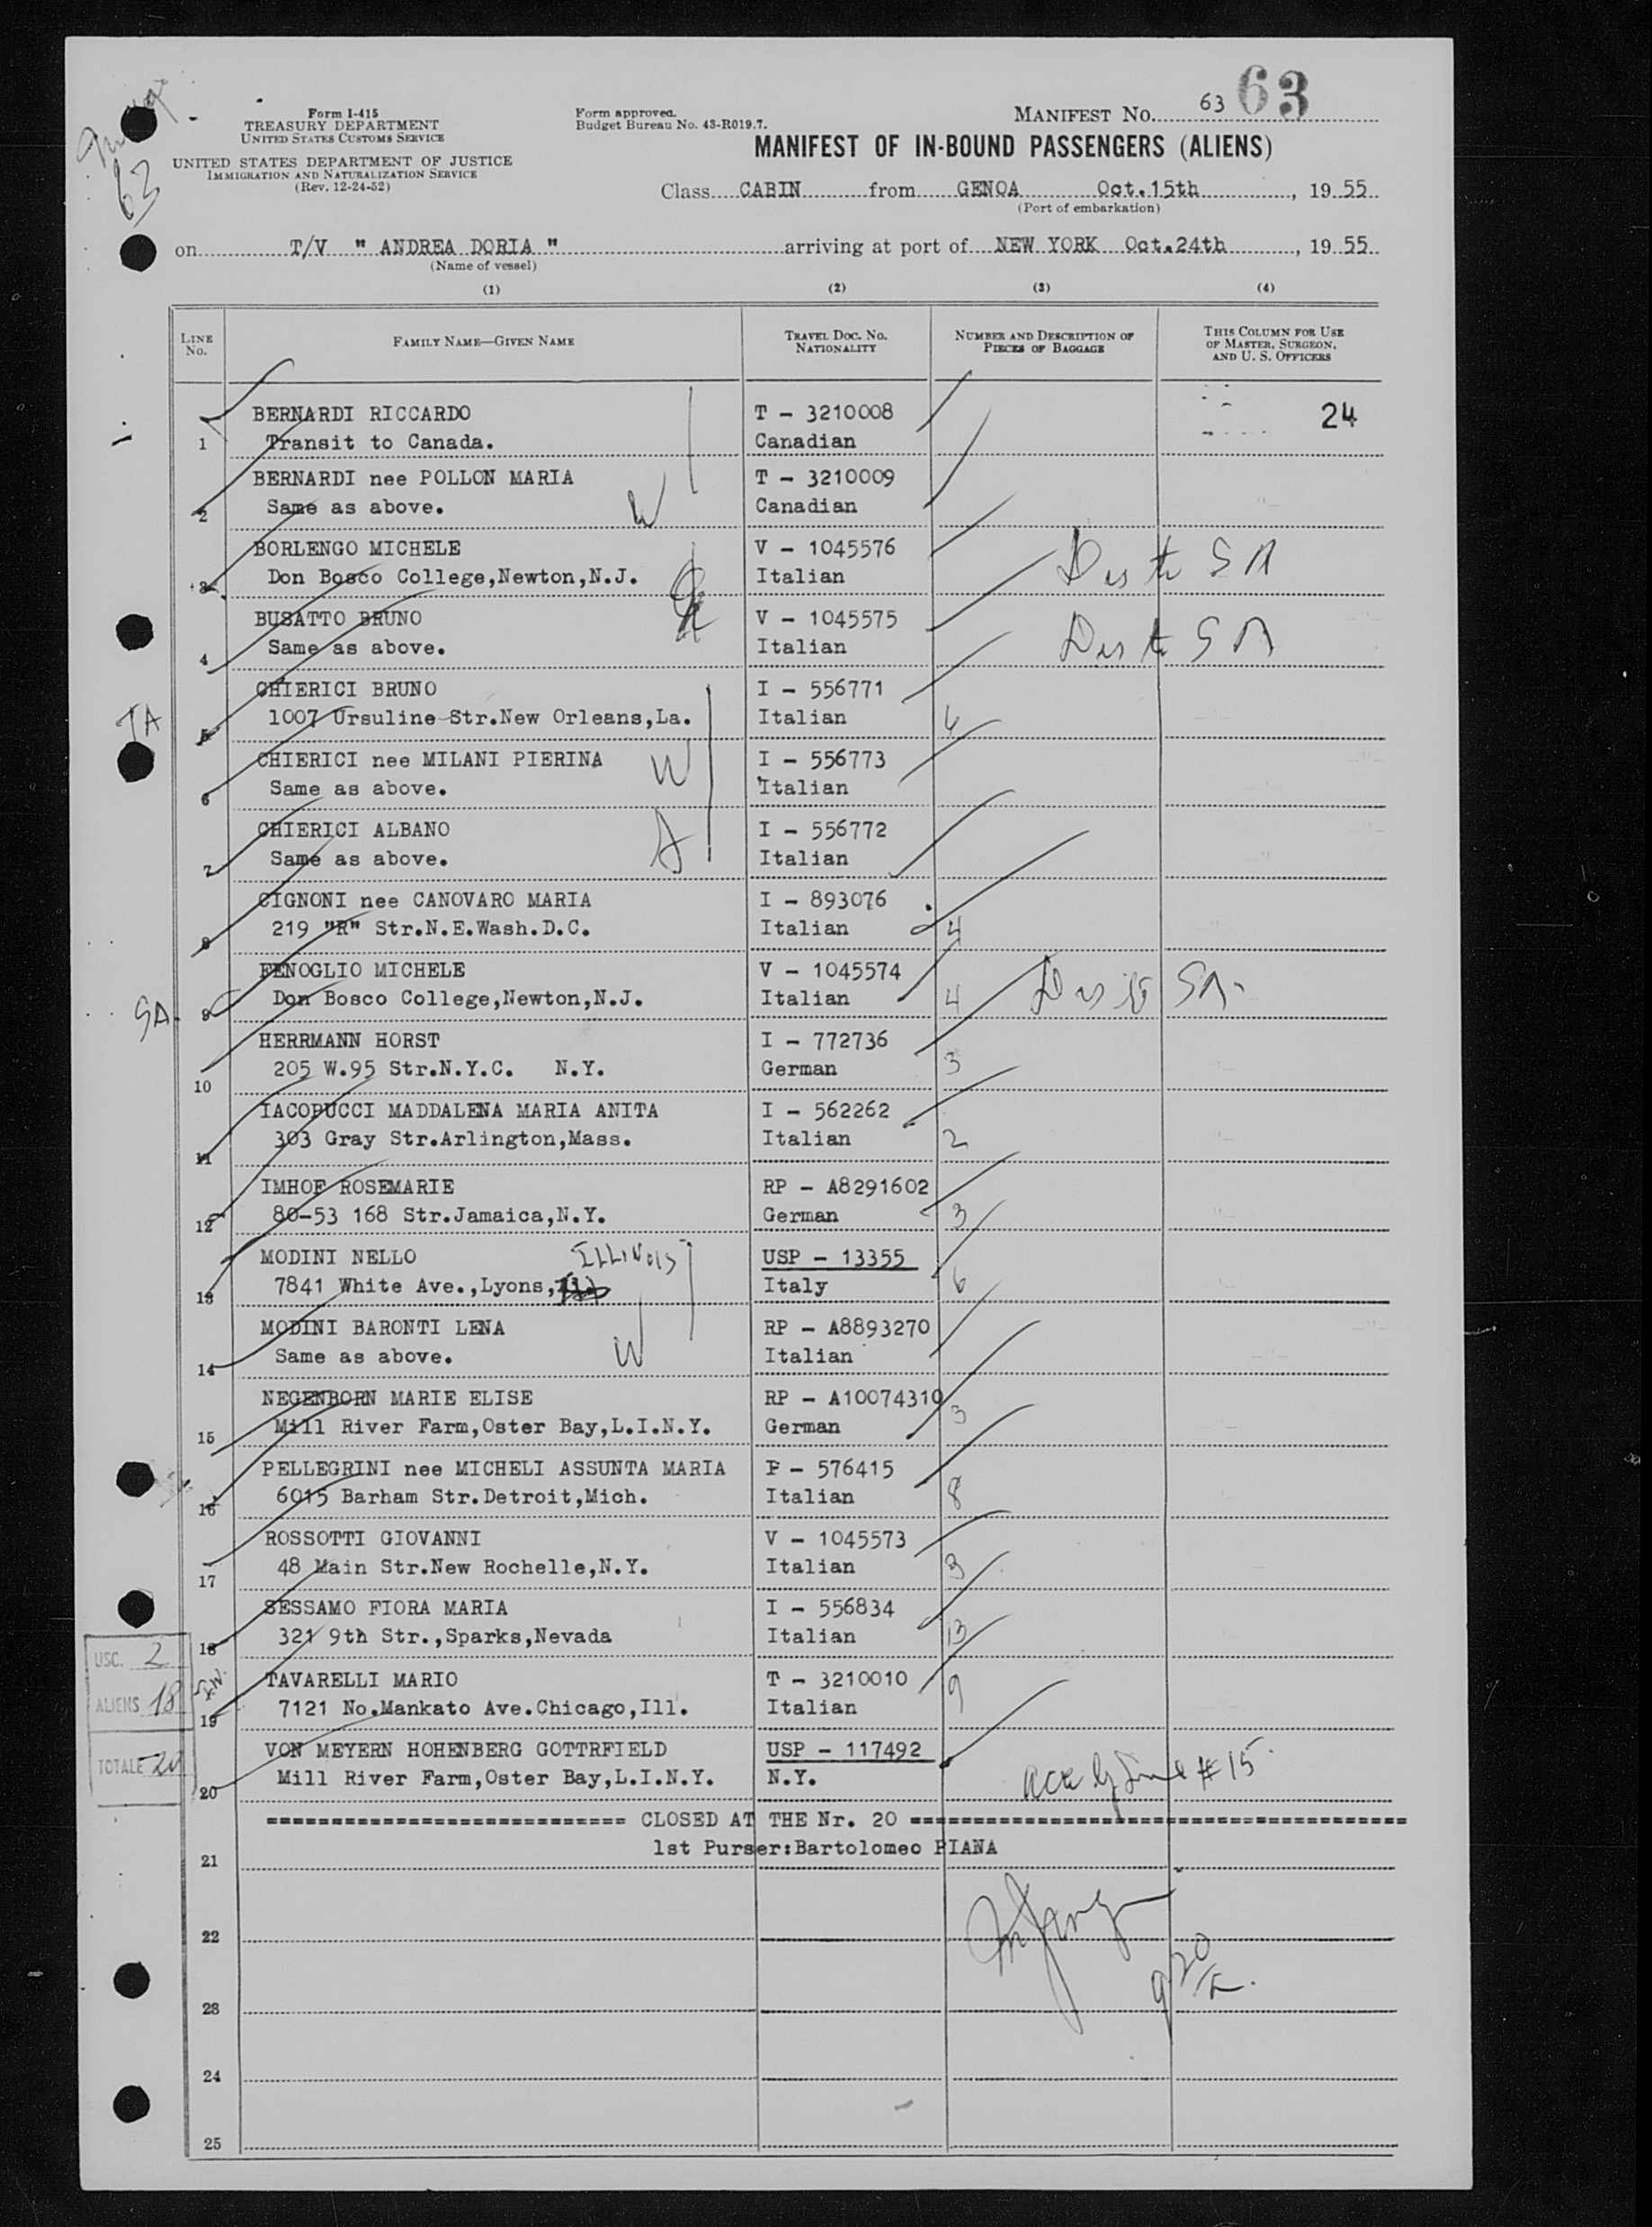 63
Form I-415
TREASURY DEPARTMENT
UNITED STATES CUSTOMS SERVICE
UNITED STATES DEPARTMENT OF JUSTICE
IMMIGRATION AND NATURALIZATION SERVICE
(Rev. 12-24-52)
Form approved.
Budget Bureau No. 43-R019.7.
MANIFEST No. 63 63
MANIFEST OF IN-BOUND PASSENGERS (ALIENS)
Class CABIN from GENOA Oct.15th, 19 55
(Port of embarkation)
on T/V " ANDREA DORIA " arriving at port of NEW YORK Oct.24th, 19 55
(Name of vessel)
(1) (2) (3) (4)
LINE No. FAMILY NAME—GIVEN NAME TRAVEL DOC. NO. NATIONALITY NUMBER AND DESCRIPTION OF PIECES OF BAGGAGE THIS COLUMN FOR USE OF MASTER, SURGEON, AND U. S. OFFICERS
BERNARDI RICCARDO T - 3210008 24
1 Transit to Canada. Canadian
BERNARDI nee POLLON MARIA T - 3210009
2 Same as above. W Canadian
BORLENGO MICHELE V - 1045576
3 Don Bosco College,Newton,N.J. Italian SA
BUSATTO BRUNO V - 1045575
4 Same as above. Italian SA
CHIERICI BRUNO I - 556771
TA 5 1007 Ursuline Str.New Orleans,La. Italian 6
CHIERICI nee MILANI PIERINA I - 556773
6 Same as above. W Italian
CHIERICI ALBANO I - 556772
7 Same as above. Italian
CIGNONI nee CANOVARO MARIA I - 893076
8 219 "R" Str.N.E.Wash.D.C. Italian 4
FENOGLIO MICHELE V - 1045574
SA. 9 Don Bosco College,Newton,N.J. Italian 4 SA.
HERRMANN HORST I - 772736
10 205 W.95 Str.N.Y.C. N.Y. German 3
IACOPUCCI MADDALENA MARIA ANITA I - 562262
11 303 Gray Str.Arlington,Mass. Italian 2
IMHOF ROSEMARIE RP - A8291602
12 80-53 168 Str.Jamaica,N.Y. German 3
MODINI NELLO ILLINOIS USP - 13355
13 7841 White Ave.,Lyons, Italy 6
MODINI BARONTI LENA RP - A8893270
14 Same as above. W Italian
NEGENBORN MARIE ELISE RP - A10074310
15 Mill River Farm,Oster Bay,L.I.N.Y. German 3
PELLEGRINI nee MICHELI ASSUNTA MARIA - 576415
16 6015 Barham Str.Detroit,Mich. Italian 8
ROSSOTTI GIOVANNI V - 1045573
17 48 Main Str.New Rochelle,N.Y. Italian 3
SESSAMO FIORA MARIA I - 556834
18 321 9th Str.,Sparks,Nevada Italian 13
USC. 2
TAVARELLI MARIO T - 3210010
ALIENS 18
19 7121 No.Mankato Ave.Chicago,Ill. Italian 9
VON MEYERN HOHENBERG GOTTRFIELD USP - 117492
TOTALE 20
20 Mill River Farm,Oster Bay,L.I.N.Y. N.Y. #15
============================ CLOSED AT THE Nr. 20 ======================================
1st Purser:Bartolomeo PIANA
21
22
23
24
25